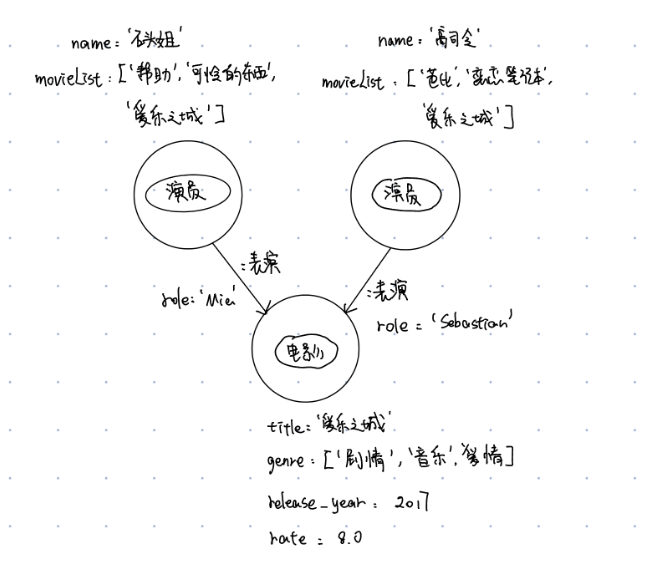 name: '石头姐'
movieList: ['帮助','可怜的东西',
'爱乐之城']
name: '高司令'
movieList: ['芭比','恋恋笔记本',
'爱乐之城']
演员
演员
:表演
role: 'Mia'
:表演
role = 'Sebastian'
电影
title: '爱乐之城'
genre: ['剧情','音乐','爱情]
release_year: 2017
rate: 8.0